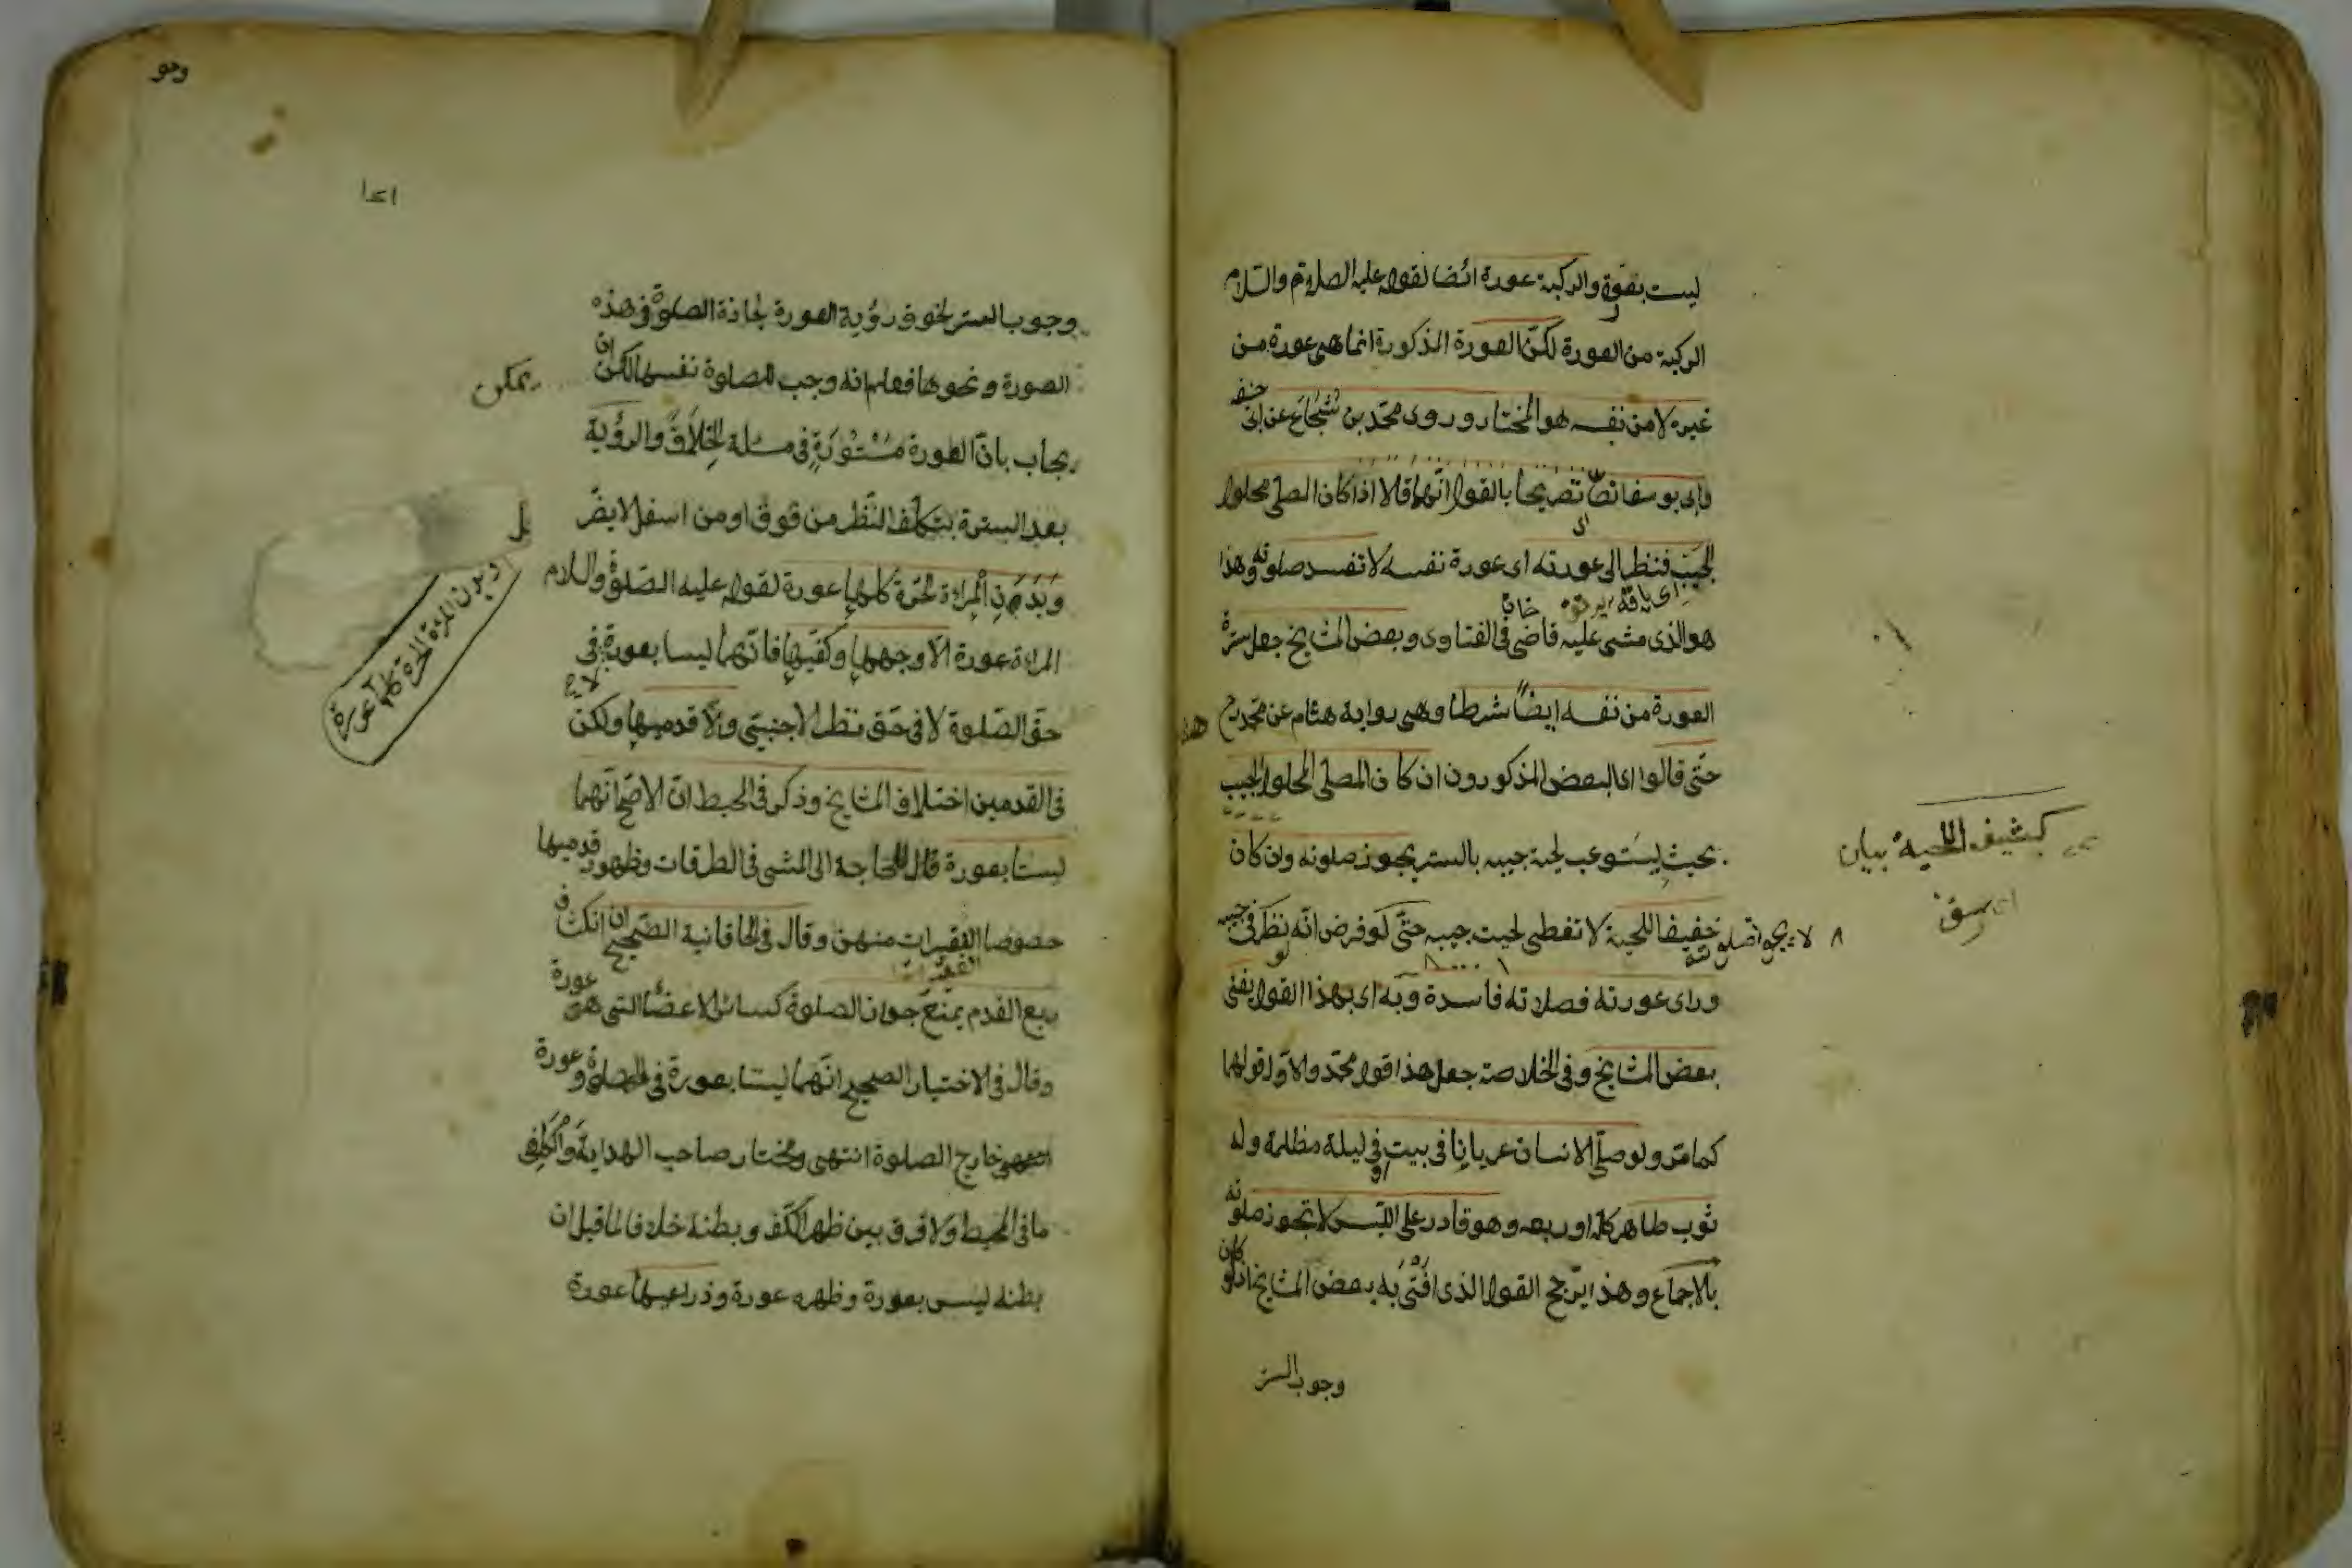 ليست بقوة والركبة عورة ايضا لقوله عليه الصلاة والسلام
الركبة من العورة لكنّ العورة المذكورة انما هى عورة من
غيره لا من نفسه هو المختار وروى محمد بن شجاع عن ابى حنيفه
وابى يوسف نصّا تصريحا بالقول انّهما قالا اذا كان المصلى محلول
الجيب فنظر الى عورته اى عورة نفسه لا تفسد صلوته وهذا
هو الذى مشى عليه قاضى خان فى الفتاوى وبعض المشايخ جعل سترة
العورة من نفسه ايضًا شرطا وهى رواية هشام عن محمد رح
حتّى قالوا اى البعض المذكورون ان كان المصلى المحلول الجيب
بحيث يستوعب لحية جيبه بالستر يجوز صلوته وان كان
خفيف اللحية لا تغطى لحيته جيبه حتّى لو فرض انّه نظر فى جيبه
وراى عورته فصلاته فاسدة وبه اى بهذا القول يفتى
بعض المشايخ وفى الخلاصة جعل هذا قول محمّد والاوّل قولهما
كما مرّ ولو صلّى الانسان عريانا فى بيت فى ليلة مظلمة وله
ثوب طاهر كله او ربعه وهو قادر على اللبس لا تجوز صلوته
بالاجماع وهذا يرجّح القول الذى افتى به بعض المشايخ اذ لو كان
وجوب الستر
كثيف اللحية بيان
لا يجوز صلوته
وجوب الستر لخوف رؤية العورة لجازة الصلوة فى هذه
الصورة ونحوها فعلم انه وجب للصلوة نفسها لكن
يمكن ان
يجاب بانّ العورة مستورة فى مسئلة الخلاف والرؤية
بعد السترة بتكلّف النّظر من فوق او من اسفل لا يضرّ
بل
وبدن المراة الحرّة كلها عورة لقوله عليه الصلوة والسلام
بدن المرءة الحرة كلها عورة
المراة عورة الّا وجهها وكفّيها فانّهما ليسا بعورة فى
حقّ الصّلوة لا فى حقّ نظر الاجنبيّ والّا قدميها ولكن
فى القدمين اختلاف المشايخ وذكر فى المحيط انّ الاصحّ انّهما
ليستا بعورة قال للحاجة الى المشى فى الطرقات وظهور قدميها
خصوصا الفقيرات منهن وقال فى الخاقانية الصّحيح ان انكشاف
ربع القدم يمنع جواز الصلوة كسائر الاعضاء التى هى عورة
وقال فى الاختيار الصحيح انّهما ليستا بعورة فى الصلوة وعورة
خارج الصلوة انتهى ومختار صاحب الهداية والكافى
ما فى المحيط ولا فرق بين ظهر الكفّ وبطنه خلافا لما قيل ان
بطنه ليس بعورة وظهره عورة وذراعيها عورة